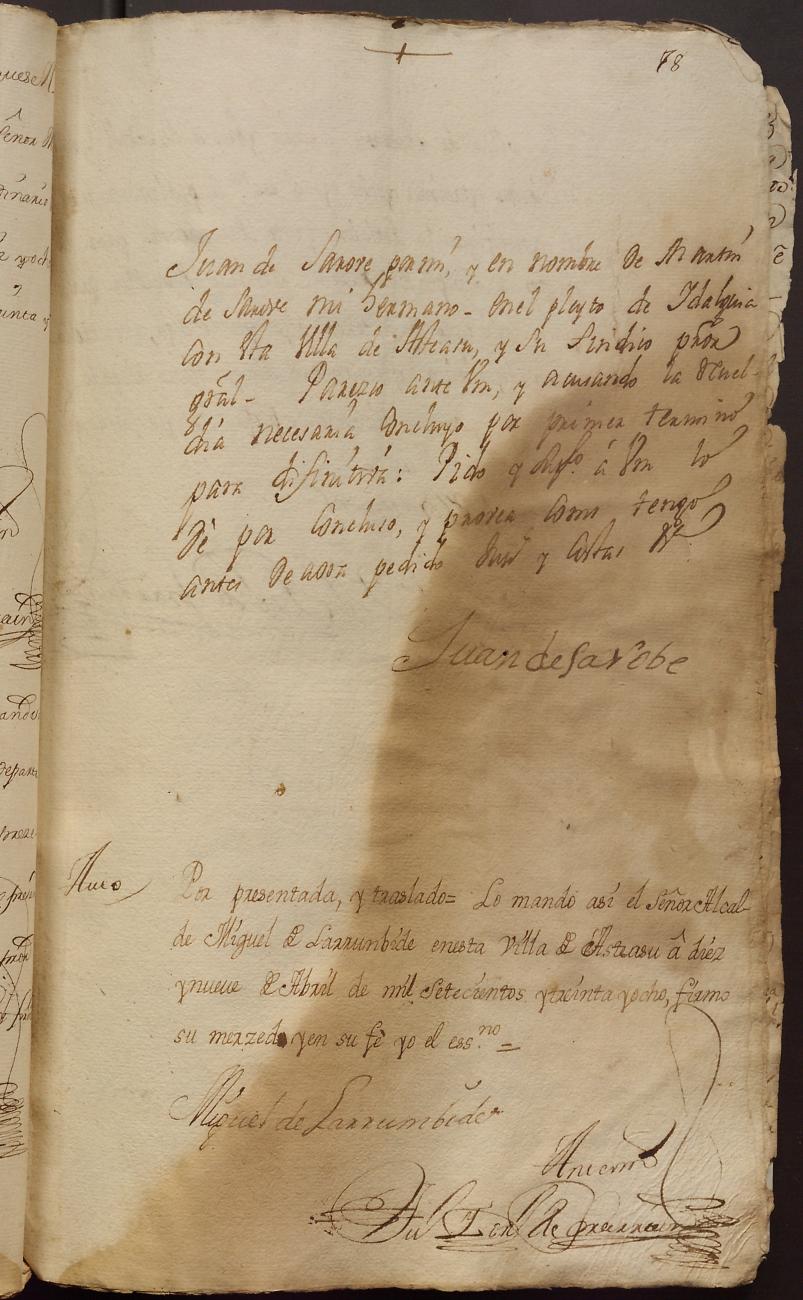 78
Juan de Sarove por mi, y en nombre de Martin
de Sarove mi hermano en el pleyto de Idalguia
con sta Villa de Asteasu, y su Sindico pror
gral Parezco ante Vm, y acusando la Revel
dia necesaria Concluyo por primer termino
para difinitiva: Pido y supco á Vm lo
dè por Concluso, y provea como tengo
antes de aora pedido Justa y Costas &a
Juan de Sarobe
Auto
Por presentada, y traslado= Lo mandó así el Señor Alcal-
de Miguel de Larrumbide en esta Villa de Asteasu â diez
y nueve de Abril de mil Setecientos y treinta y ocho, firmo
su merzed y en su fè yo el essno =
Miguel de Larrumbide
Ante mi